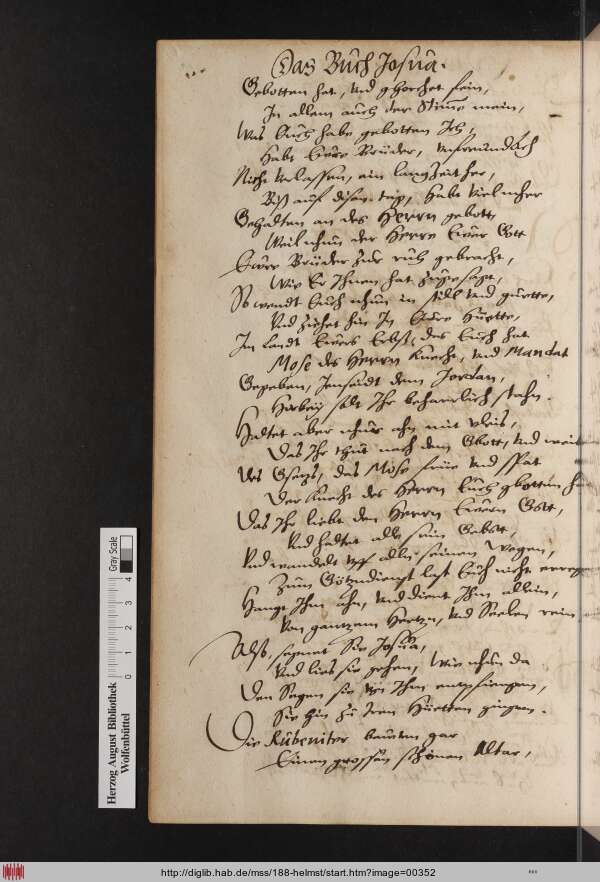 Das Buch Josua.
Gebotten hat, vnd gehorchet fein,
In allem auch der Stim̄e mein,
Was Euch habe gebotten Ich,
Habt Ewre Brüder,
Nicht verlassen, ein lang Zeit her,
Biß auf disen tag, Habt viel mher
Gehalten an des Herrn gebott,
Weil nhun der Herre Ewer Gott
Ewre Brüder zur ruh gebracht,
Wie Er Ihnen hat zugesagt,
So wendt Euch nhun in und guette,
Vnd ziehet hin In Ewre Huette,
Im Landt Ewers Erbst, das Euch hat
Mose des Herrn Knecht, vnd Mandat
Gegeben, Jenseidt dem Jordan,
Hierbey solt Ihr beharrlich stahn.
Haltet aber nhur ahn mit vleis,
Das Ihr thut nach dem Gbott, vnd
Des Gsetzs, das Mose und
Der Knecht des Herrn Euch gbotten
Das Ihr liebt den Herrn Ewern Gott,
Vnd haltet alle sein Gebott,
Vnd wandelt vf allen seinen Wegen,
Zum Götzendienst last Euch nicht
Hangt Ihm ahn, vnd dient Ihm allein,
Von gantzem Hertzn, vnd Seelen rein
Also, segnet Sie Josua,
Vnd lies sie gehen, Wie nhun da
Den Segen sie von Ihm entpfiengen,
Sie hin zu Iren Hüetten gingen.
Die Rubeniter baueten gar
Einen grossen schönen Altar,
Herzog August Bibliothek
Wolfenbüttel
0 1 2 3 4
Gray Scale
http://diglib.hab.de/mss/188-helmst/start.htm?image=00352